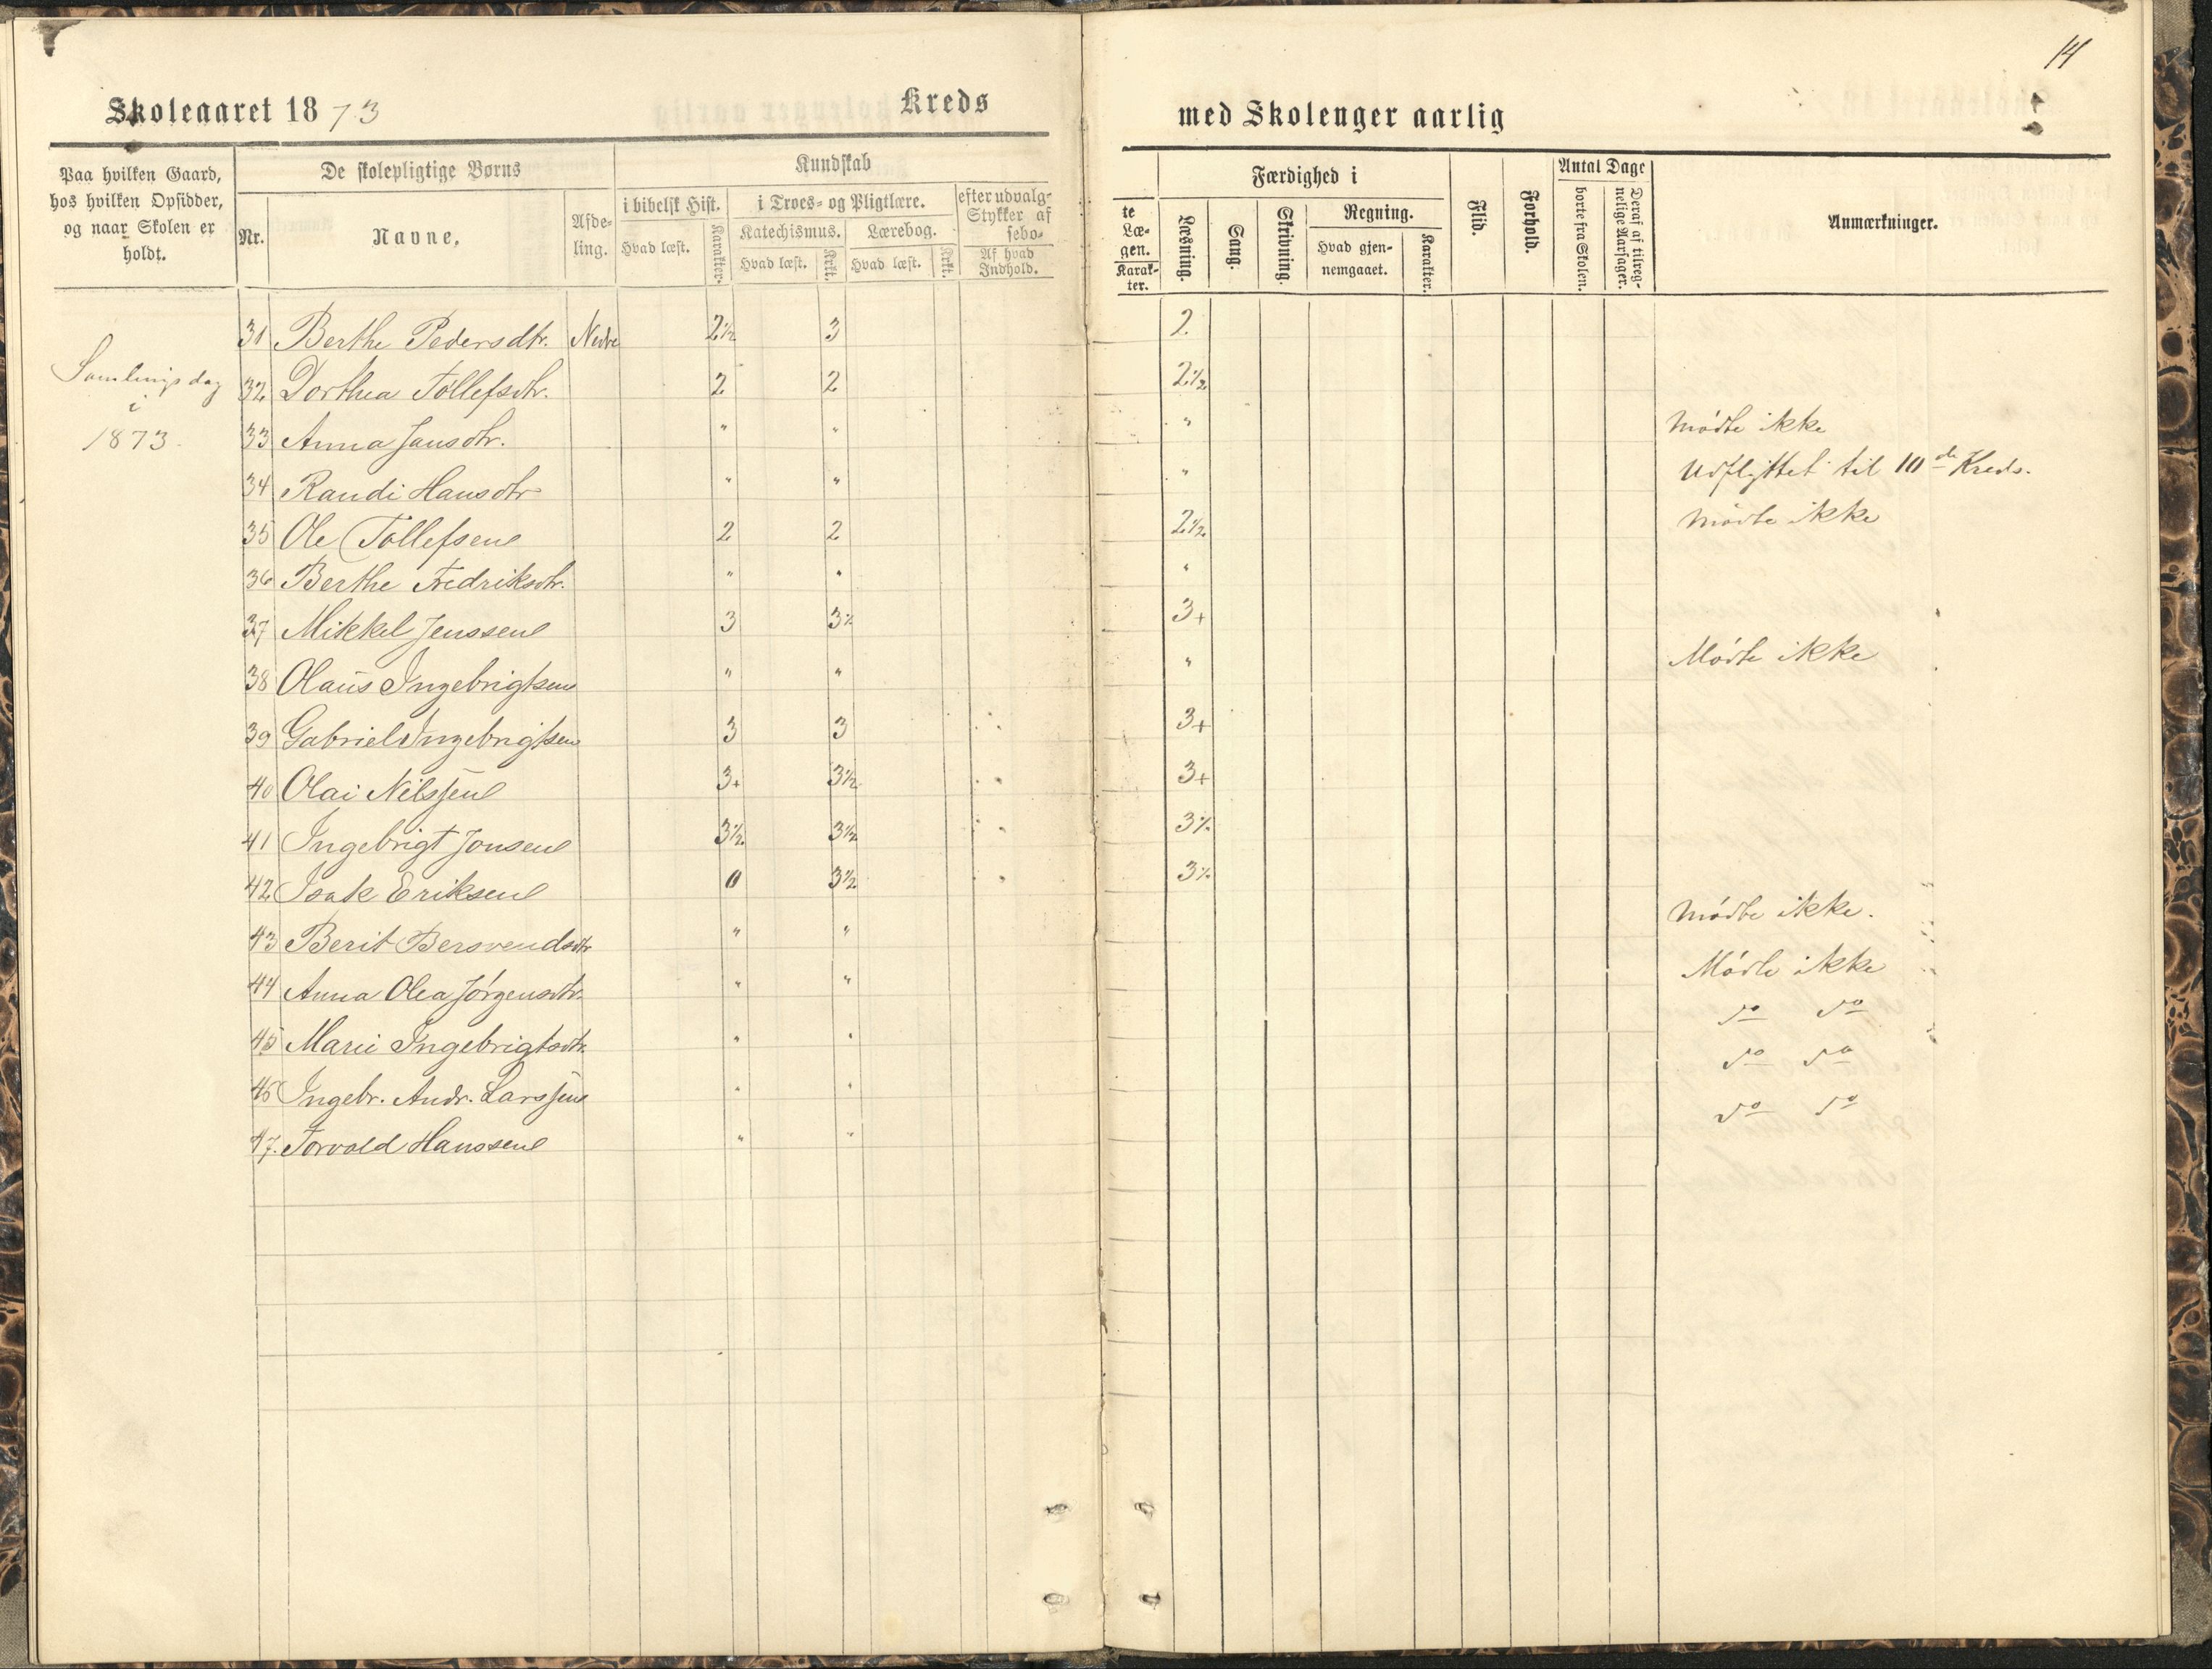 14
Skoleaaret 1873 Kreds med Skolenger aarlig
Paa hvilken Gaard, hos hvilken Opsidder, og naar Skolen er holdt.
De skolepligtige Børns
Nr. Navne. Afdeling.
Kundskab
i bibelsk Hist. Hvad læst. Karakter.
i Troes- og Pligtlære.
Katechismus. Hvad læst. Krkt.
Lærebog. Hvad læst. Krkt.
efter udvalg- Stykker af sebo- Af hvad Indhold.
te Læ- gen. Karak- ter.
Færdighed i
Læsning. Sang. Skrivning.
Regning. Hvad gjen- nemgaaet. Karakter.
Flid. Forhold.
Antal Dage
borte fra Skolen. Deraf af tilreg- nelige Aarsager.
Anmærkninger.
Samlingsdag
i
1873.
31 Berthe Pedersdtr. Nedre 2½ 3 2
32 Dorthea Tollefsdtr. 2 2 2½
33 Anna Jansdtr. " " " Mødte ikke
34 Randi Hansdtr " " " Udflyttet til 10de Kreds.
35 Ole Tollefsen 2 2 2½ Mødte ikke
36 Berthe Fredriksdtr. " " "
37 Mikkel Jenssen 3 3½ 3+
38 Olaus Ingebrigtsen " " " Mødte ikke
39 Gabriel Ingebrigtsen 3 3 3+
40 Olai Nilssen 3+ 3½ 3+
41 Ingebrigt Jonsen 3½ 3½ 3½
42 Isak Eriksen 0 3½ 3½
43 Berit Bersvendsdtr " " Mødte ikke.
44 Anna Olea Jørgensdtr. " " Mødte ikke
45 Marie Ingebrigtsdtr. " " do do
46 Ingebr. Andr. Larssen " " do do
47. Torvald Hanssen " " do do